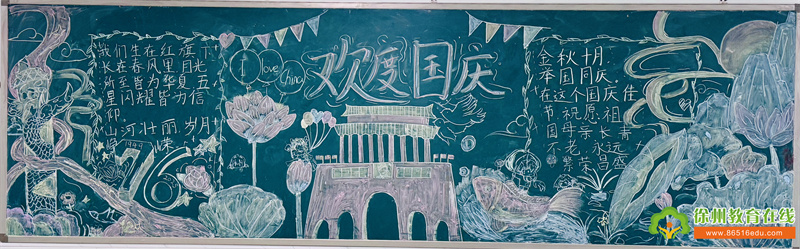 我们生在红旗下
长在春风里目光
所至皆为华夏五
星闪耀皆为信
仰
山河壮丽岁月
1949
76
I love China
欢度国庆
金秋十月
举国同庆
在这个国庆佳
节愿
祖
国
徐州教育在线
www.86516edu.com